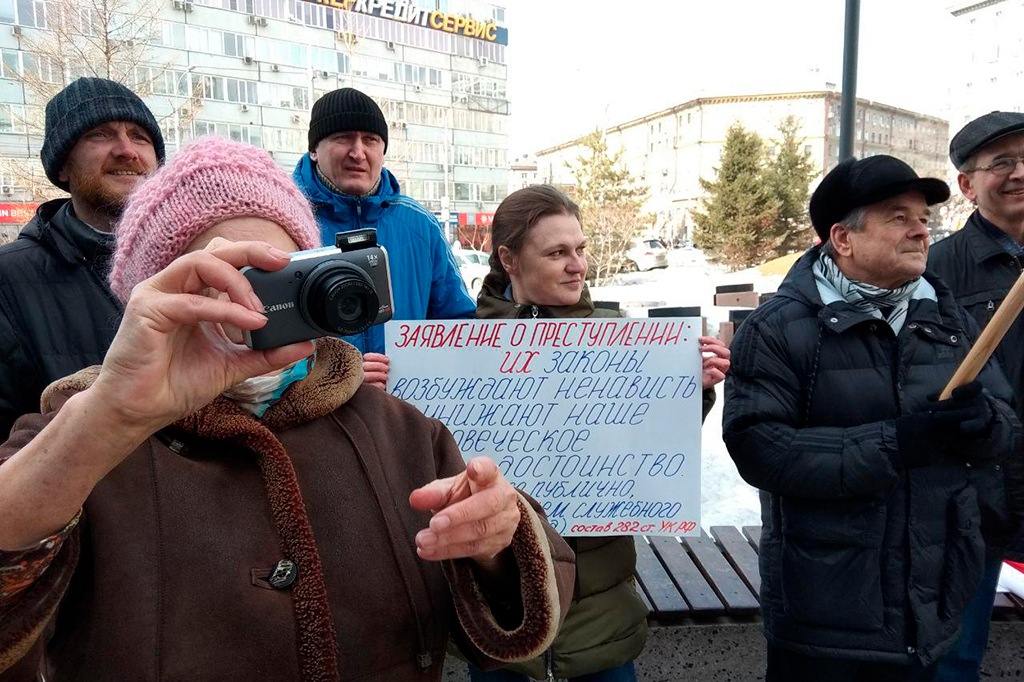 КЕРКРЕДИТСЕРВИС
Canon
14x
ЗАЯВЛЕНИЕ О ПРЕСТУПЛЕНИИ:
ИХ ЗАКОНЫ
ВОЗБУЖДАЮТ НЕНАВИСТЬ
УНИЖАЮТ НАШЕ
ОВЕЧЕСКОЕ
ДОСТОИНСТВО.
ПУБЛИЧНО,
ЕМ СЛУЖЕБНОГО
) состав 282 ст. УК РФ